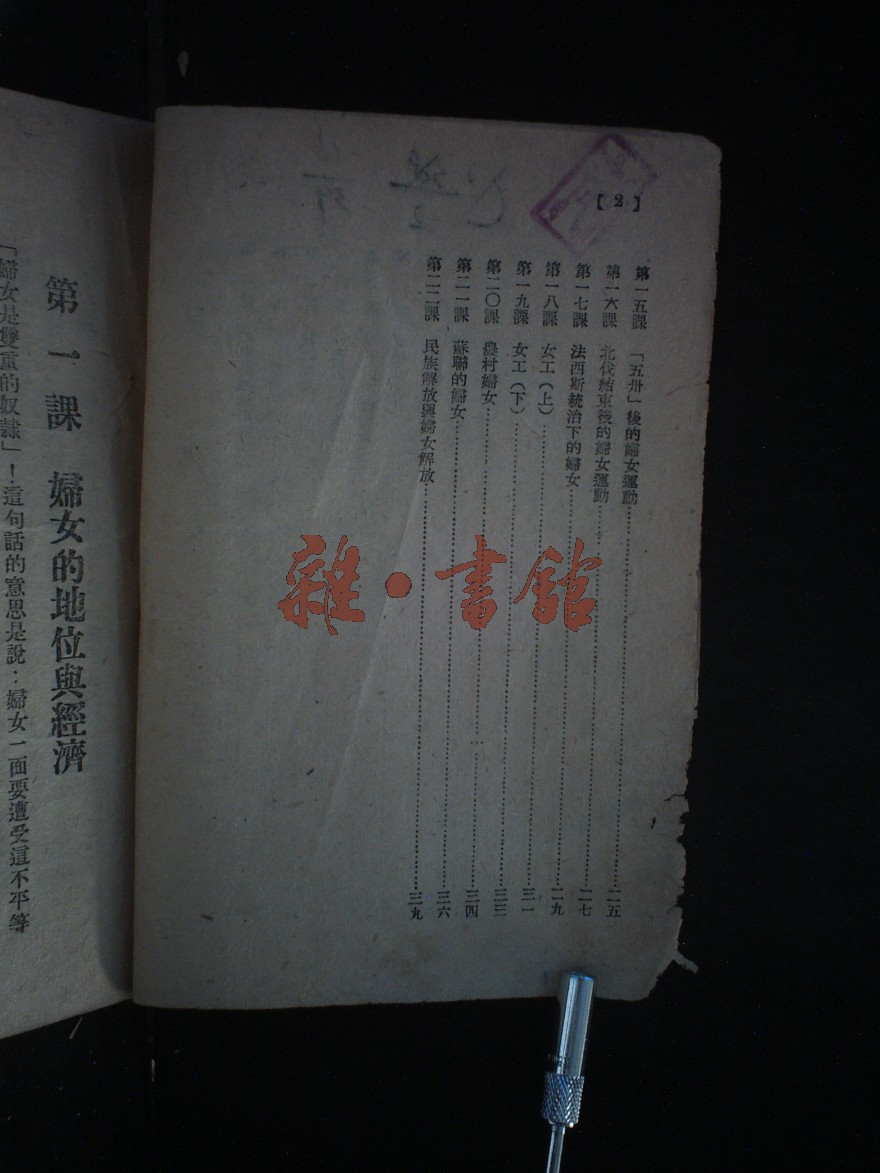 【2】
第一五課　「五卅」後的婦女運動……二五
第一六課　北伐結束後的婦女運動……二七
第一七課　法西斯統治下的婦女……二九
第一八課　女工（上）……三一
第一九課　女工（下）……三三
第二〇課　農村婦女……三四
第二一課　蘇聯的婦女……三六
第二二課　民族解放與婦女解放……三九
雜·書館
第一課　婦女的地位與經濟
「婦女是雙重的奴隸」！這句話的意思是說：婦女一面要遭受這不平等